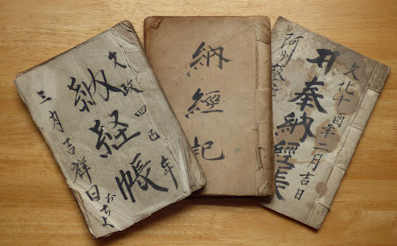 文政四巳年
納経帳
三月吉祥日
納經記
文化十酉年二月吉日
奉納經帳
阿州